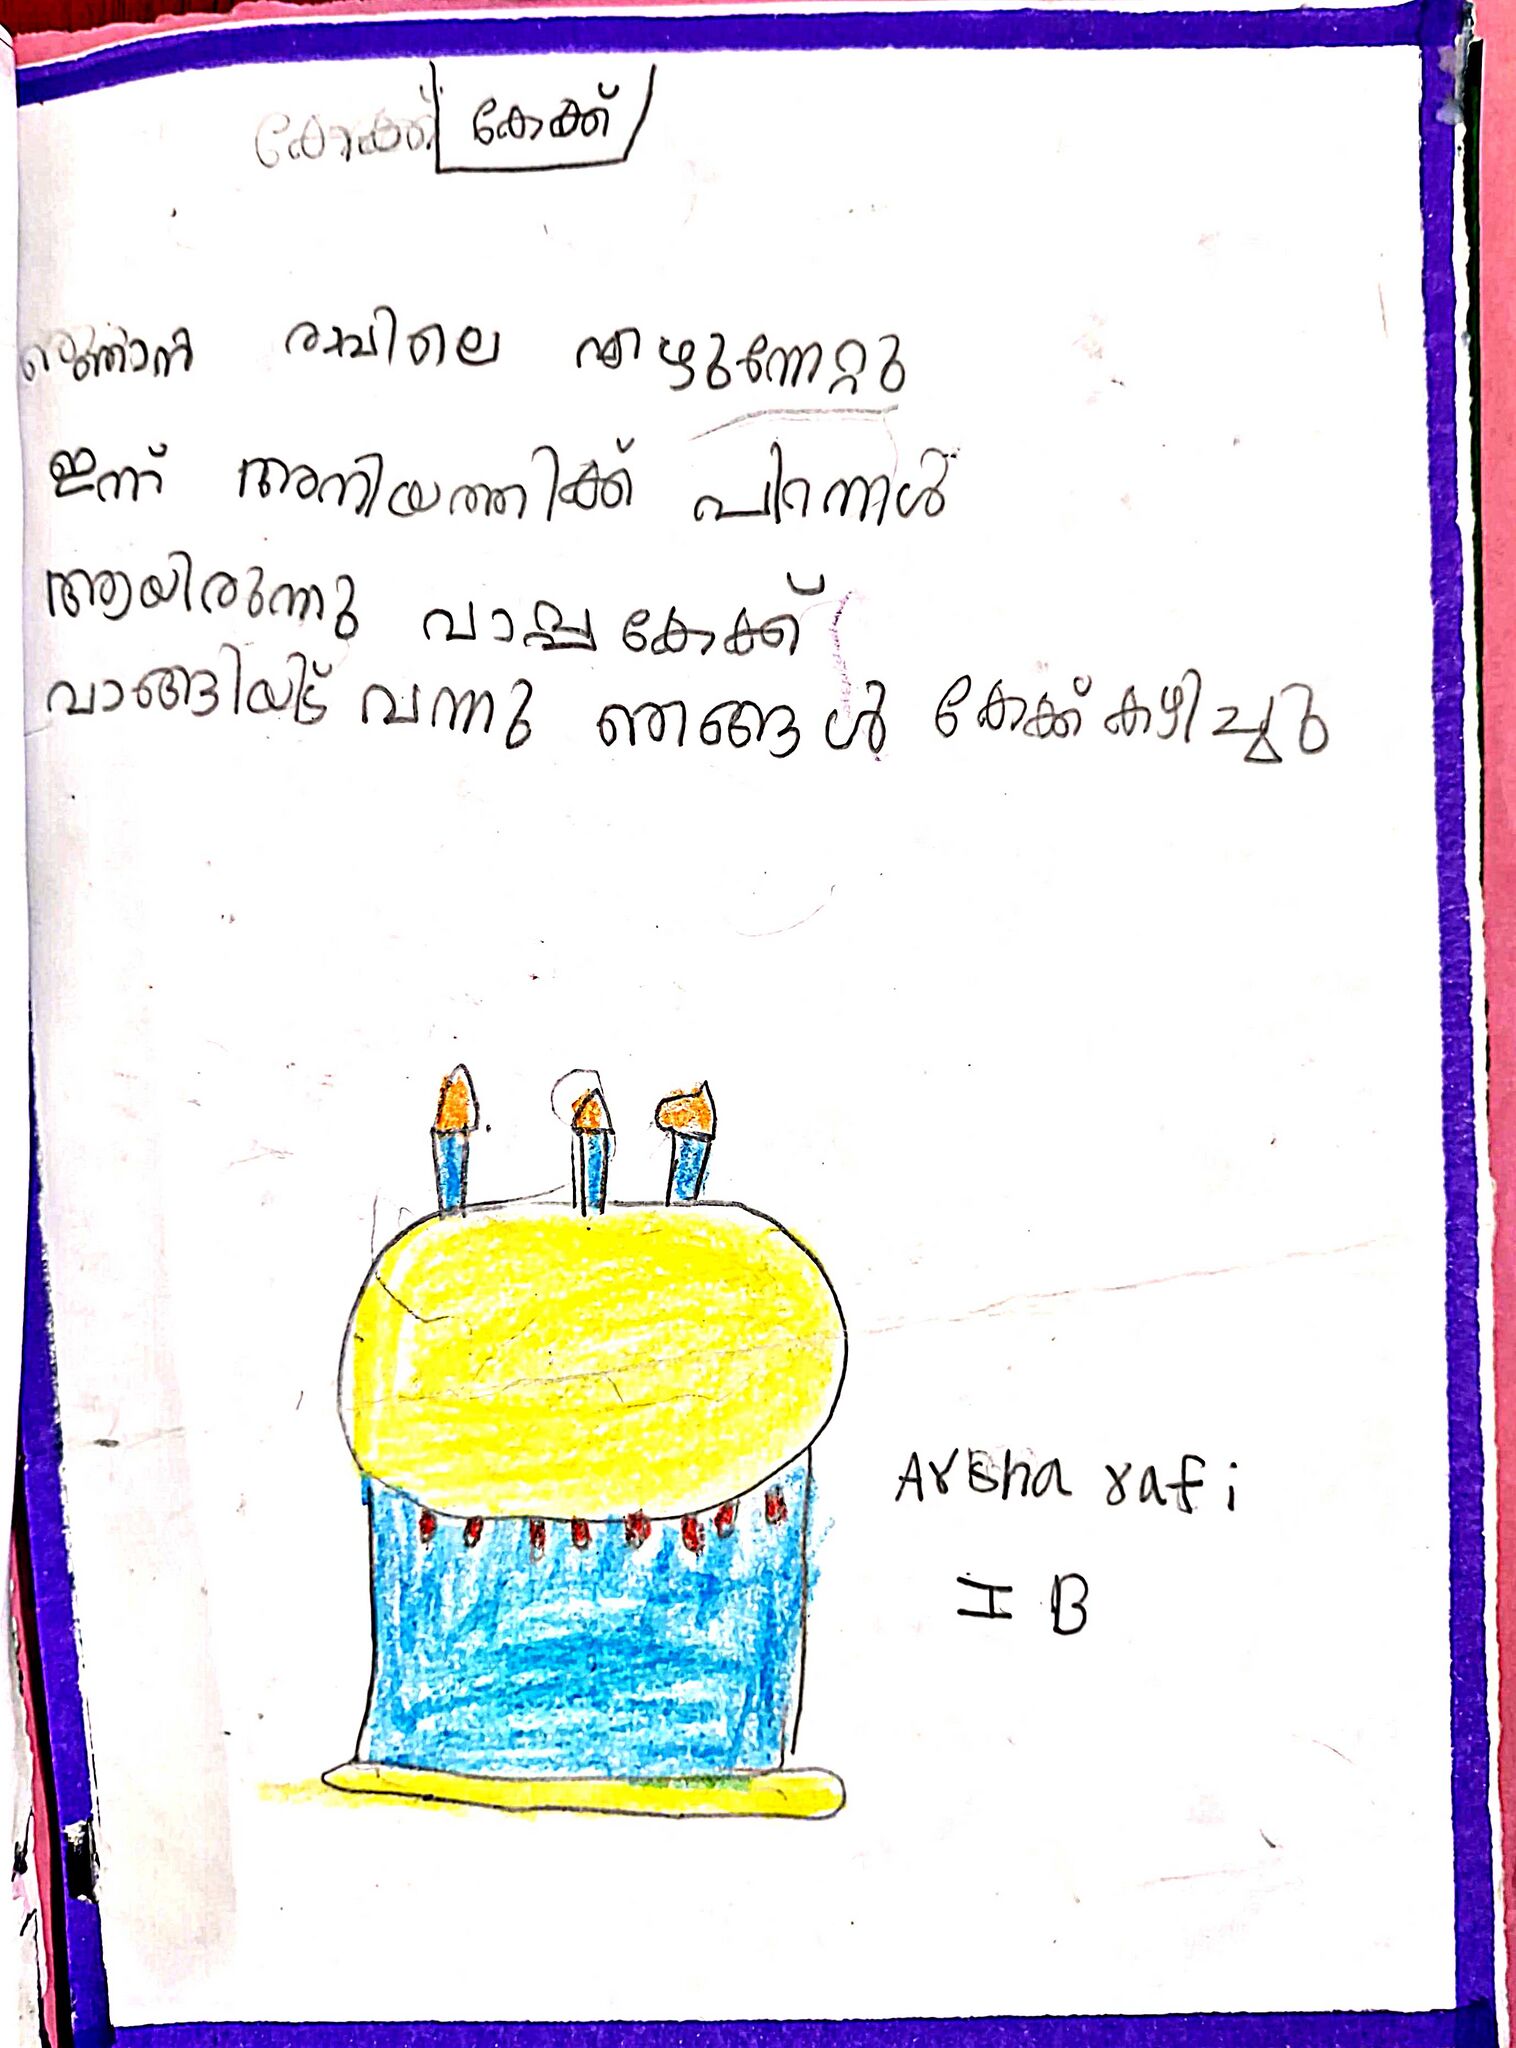 കേക്ക് കേക്ക്
ഞാൻ രാവിലെ എഴുന്നേറ്റു
ഇന്ന് അനിയത്തിക്ക് പിറന്നാൾ
ആയിരുന്നു വാപ്പ കേക്ക്
വാങ്ങിയിട്ട് വന്നു ഞങ്ങൾ കേക്ക് കഴിച്ചു
Arsha rafi
I B